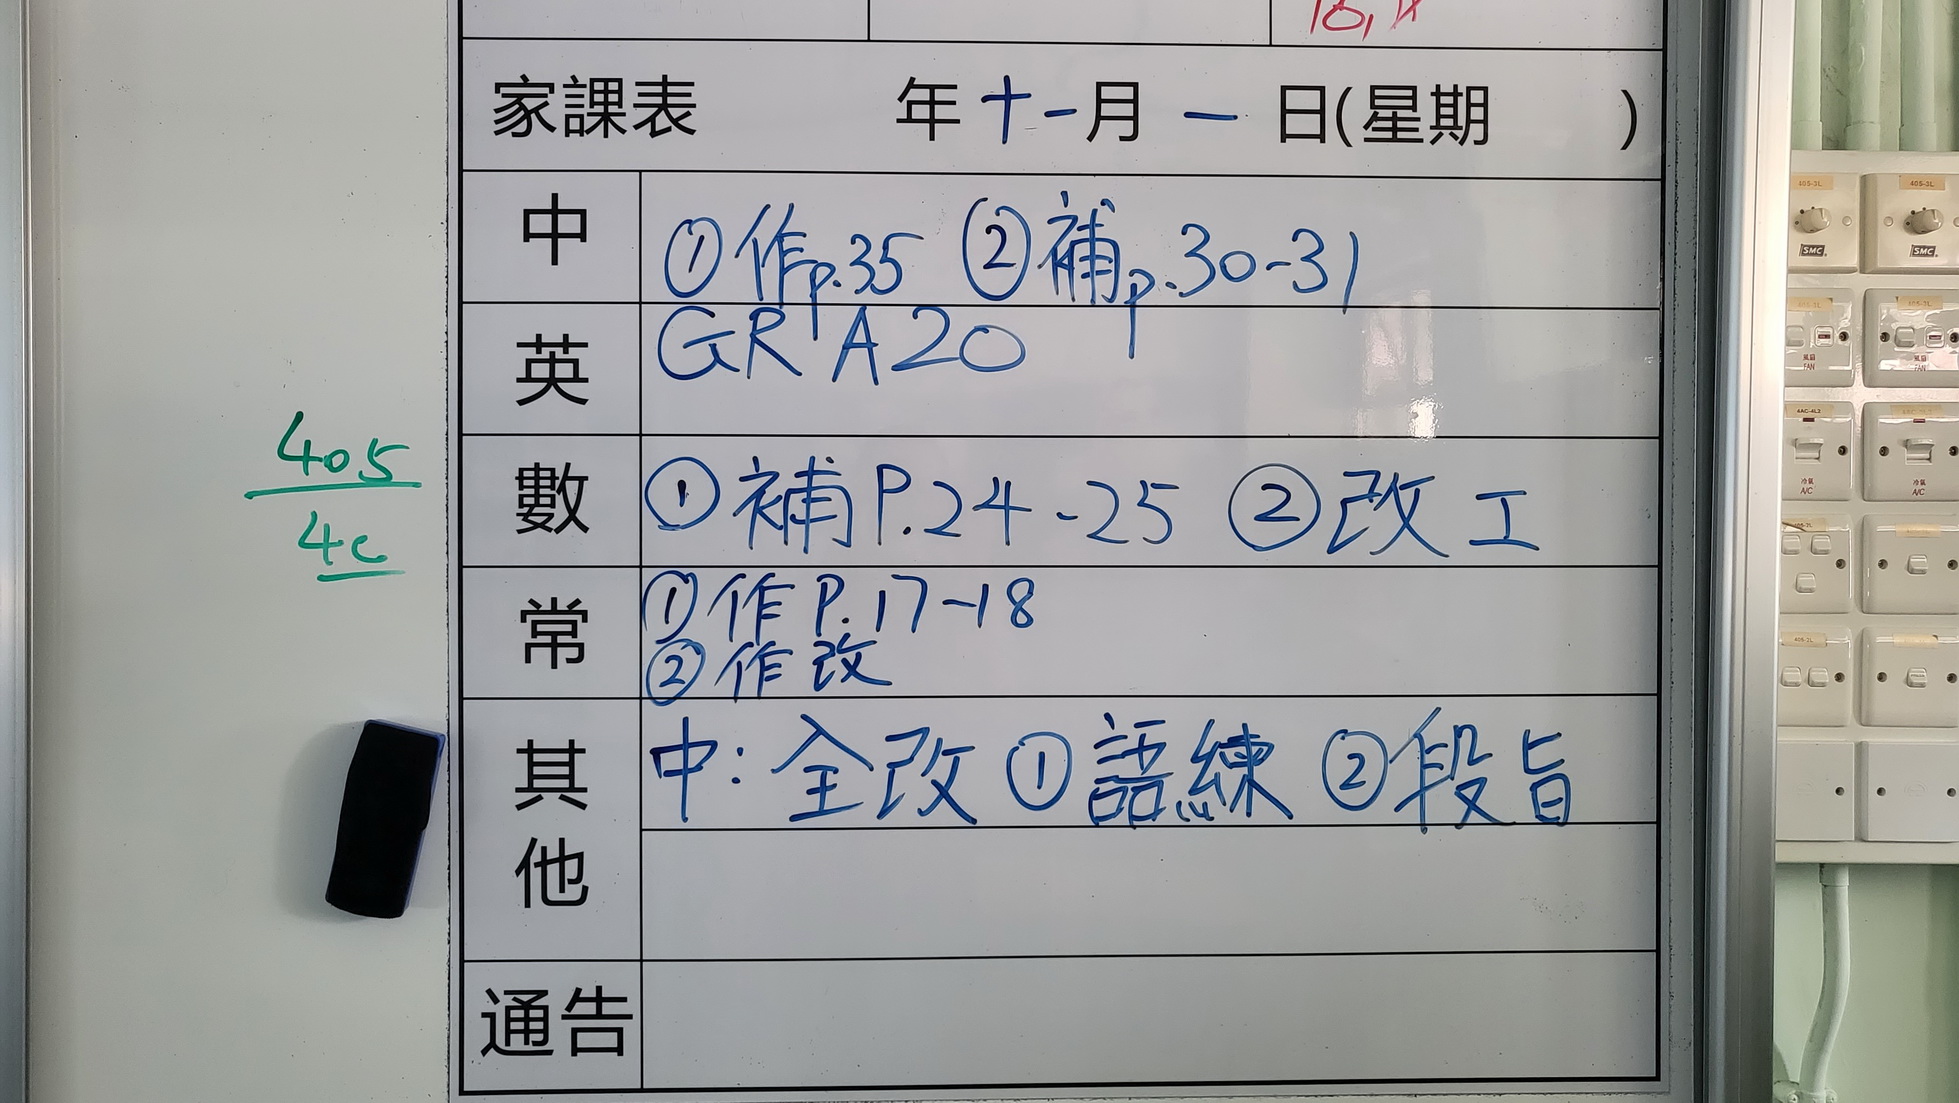 家課表 年十一月一日(星期 )
中 ①作p.35 ②補p.30-31
英 GR A20
數 ①補P.24-25 ②改工
常 ①作P.17-18
②作改
其他 中:全改 ①語練 ②段旨
通告
405
4c
405-3L
405-3L
SMC
SMC
風扇
FAN
風扇
FAN
4AC-4L2
冷氣
A/C
冷氣
A/C
405-2L